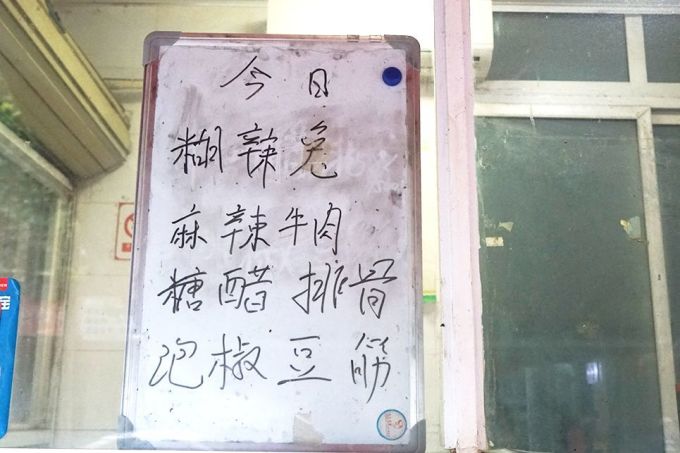 今日
糊辣兔
麻辣牛肉
糖醋排骨
泡椒豆筋